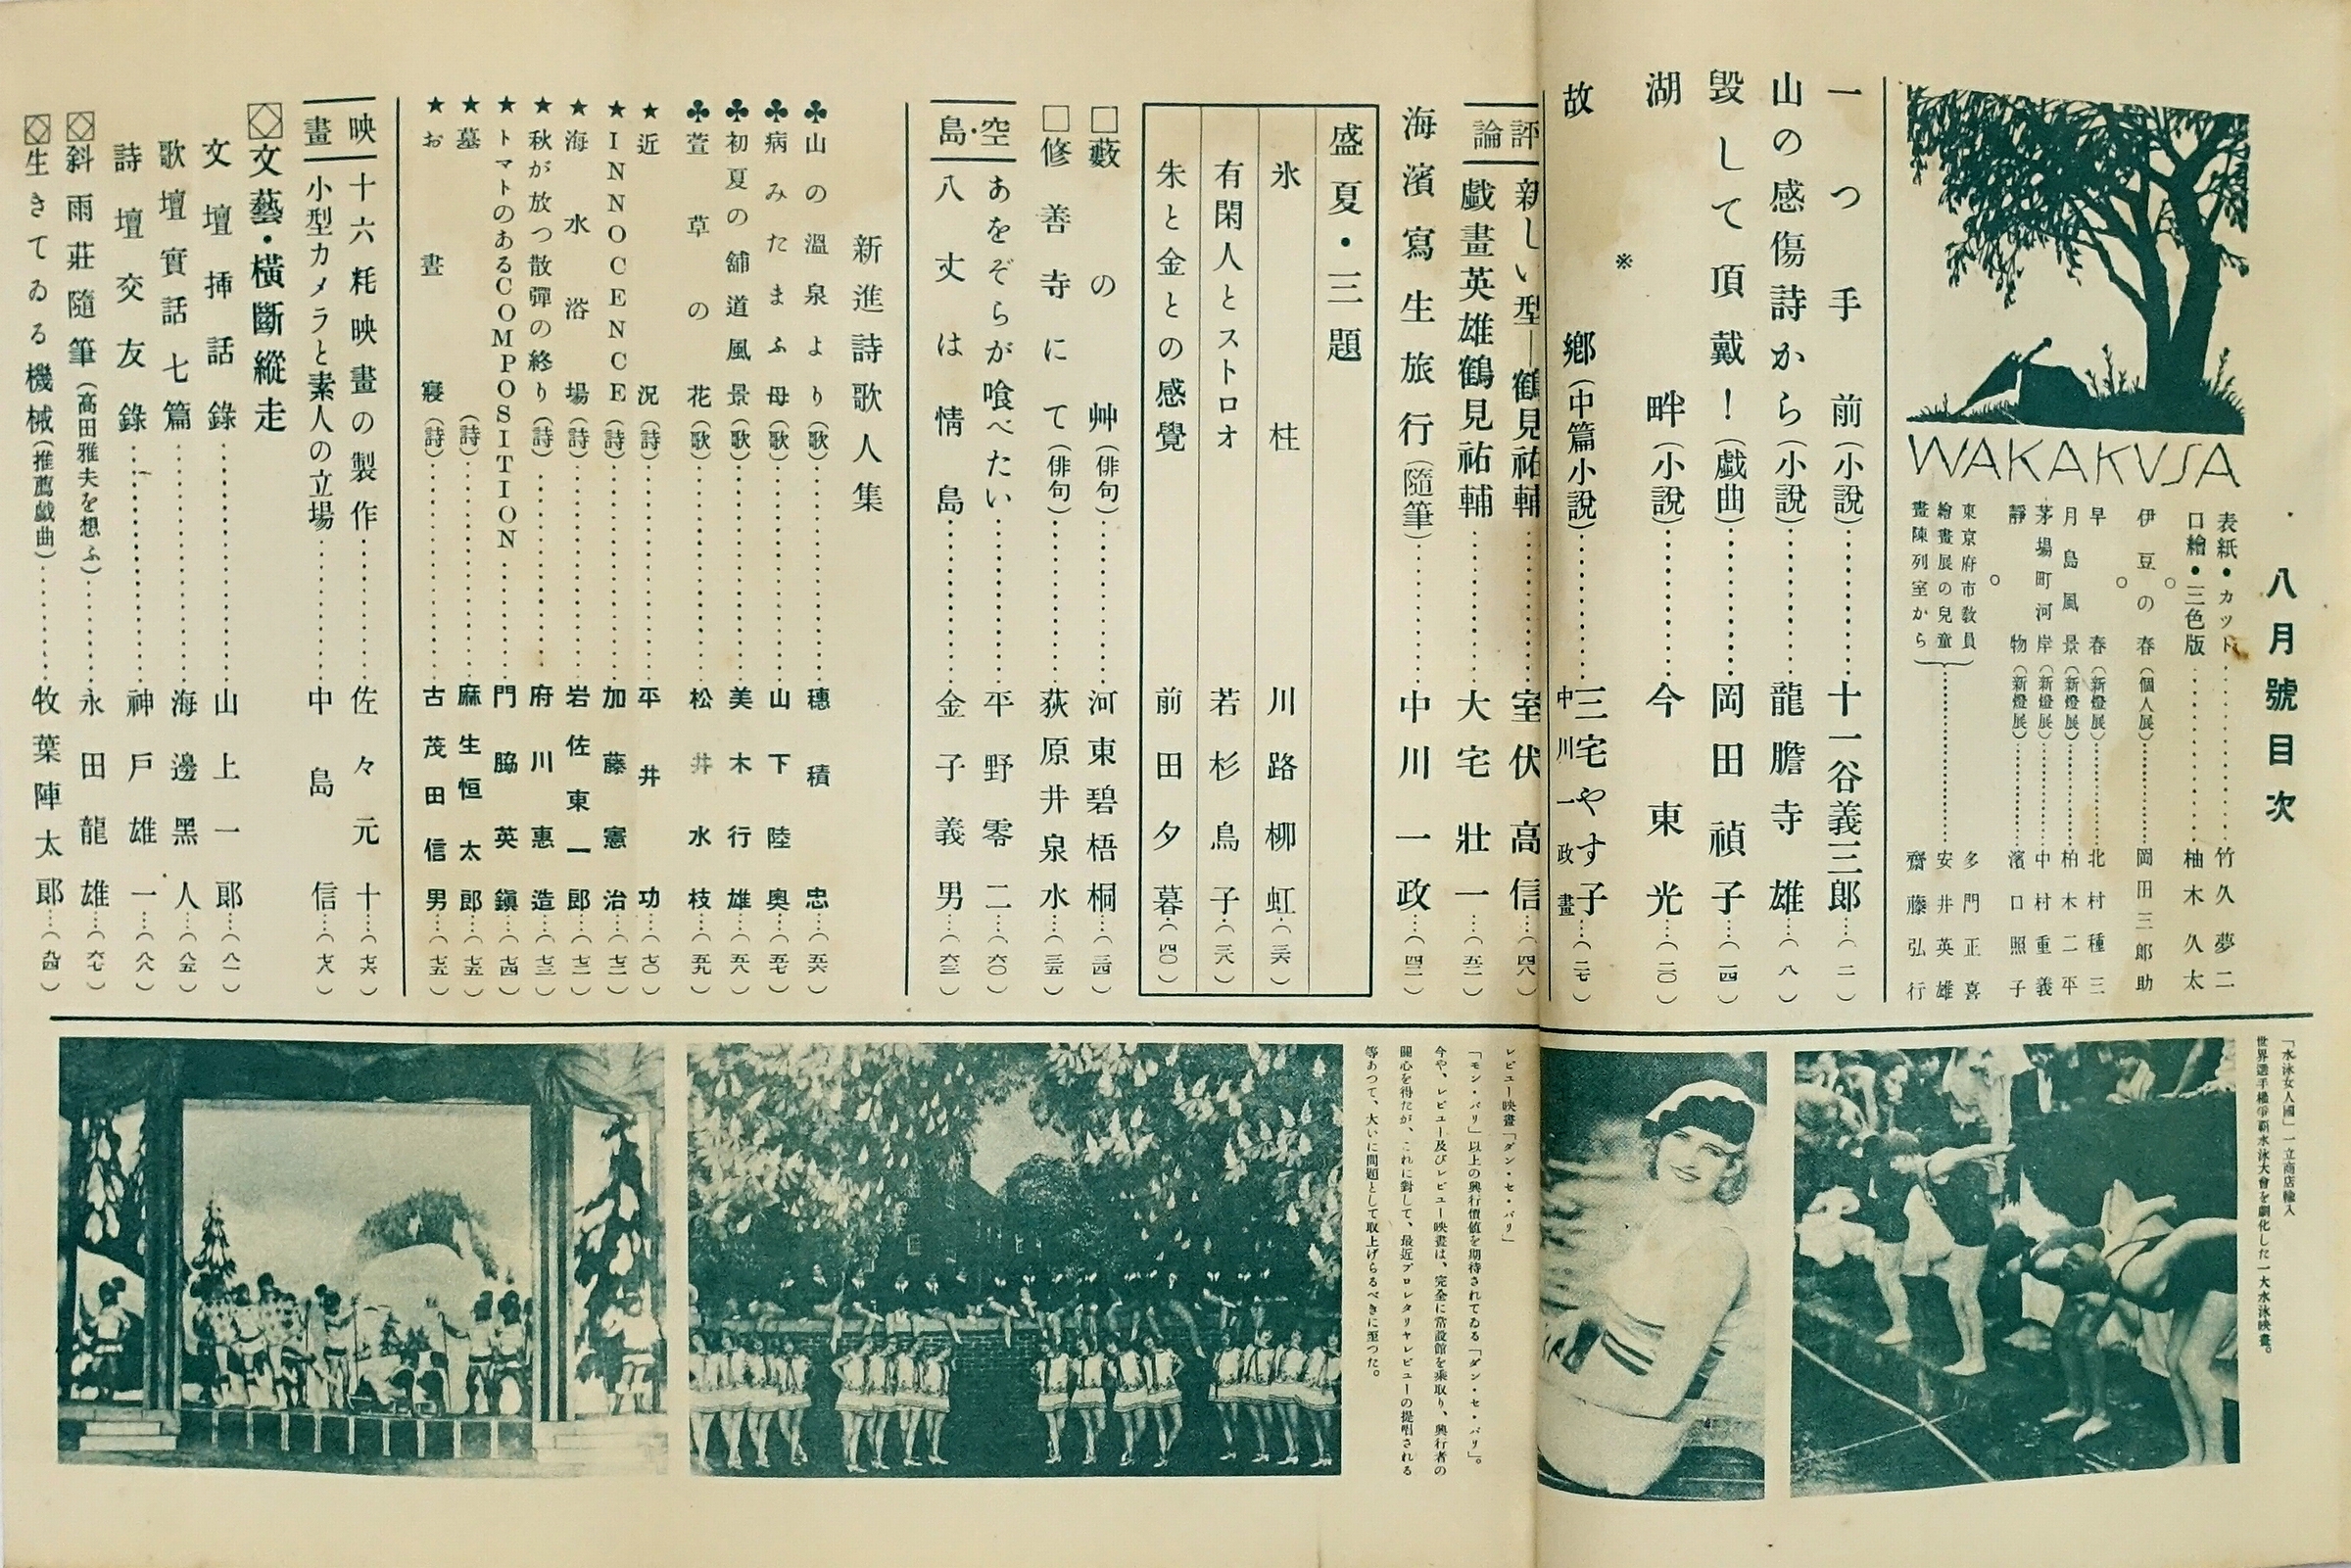 八月號目次
WAKAKUSA
表紙・カット……竹久夢二
口繪・三色版……柚木久太
伊豆の春(個人展)……岡田三郎助
早春(新燈展)……北村種三
月島風景(新燈展)……柏木二平
茅場町河岸(新燈展)……中村重義
靜物(新燈展)……濱口照子
東京府市敎員
繪畫展の兒童
畫陳列室から
多門正喜
安井英雄
齋藤弘行
一つ手前(小說)……十一谷義三郎…(二)
山の感傷詩から(小說)……龍膽寺雄…(八)
毀して頂戴!(戲曲)……岡田禎子…(一四)
湖畔(小說)……今東光…(二〇)
※
故鄕(中篇小說)……三宅やす子…(二七)
中川一政畫
評論
新しい型―鶴見祐輔……室伏高信…(四八)
戲畫英雄鶴見祐輔……大宅壯一…(五二)
海濱寫生旅行(隨筆)……中川一政…(四二)
盛夏・三題
氷柱 川路柳虹(三六)
有閑人とストロオ 若杉鳥子(三八)
朱と金との感覺 前田夕暮(四〇)
□藪の艸(俳句)……河東碧梧桐…(三四)
□修善寺にて(俳句)……荻原井泉水…(三五)
空・島
あをぞらが喰べたい……平野零二…(六〇)
八丈は情島……金子義男…(六三)
新進詩歌人集
♣山の溫泉より(歌)……穗積忠…(五六)
♣病みたまふ母(歌)……山下陸奧…(五七)
♣初夏の舖道風景(歌)……美木行雄…(五八)
♣萱草の花(歌)……松井水枝…(五九)
★近況(詩)……平井功…(七〇)
★INNOCENCE(詩)……加藤憲治…(七二)
★海水浴場(詩)……岩佐東一郎…(七二)
★秋が放つ散彈の終り(詩)……府川惠造…(七三)
★トマトのあるCOMPOSITION……門脇英鎭…(七四)
★墓(詩)……麻生恒太郎…(七五)
★お晝寢(詩)……古茂田信男…(七五)
映畫
十六粍映畫の製作……佐々元十…(七六)
小型カメラと素人の立場……中島信…(七八)
◇文藝・橫斷縱走
文壇揷話錄……山上一郞…(八一)
歌壇實話七篇……海邊黑人…(八五)
詩壇交友錄……神戶雄一…(八八)
◇斜雨莊隨筆(高田雅夫を想ふ)……永田龍雄…(六七)
◇生きてゐる機械(推薦戲曲)……牧葉陣太郞…(九四)
「水泳女人國」一立商店輸入
世界選手權爭覇水泳大會を劇化した一大水泳映畫。
レビュー映畫「ダン・セ・パリ」
「モン・パリ」以上の興行價値を期待されてゐる「ダン・セ・パリ」。
今や、レビュー及びレビュー映畫は、完全に常設館を乘取り、興行者の
關心を得たが、これに對して、最近プロレタリヤレビューの提唱される
等あつて、大いに問題として取上げらるべきに至つた。